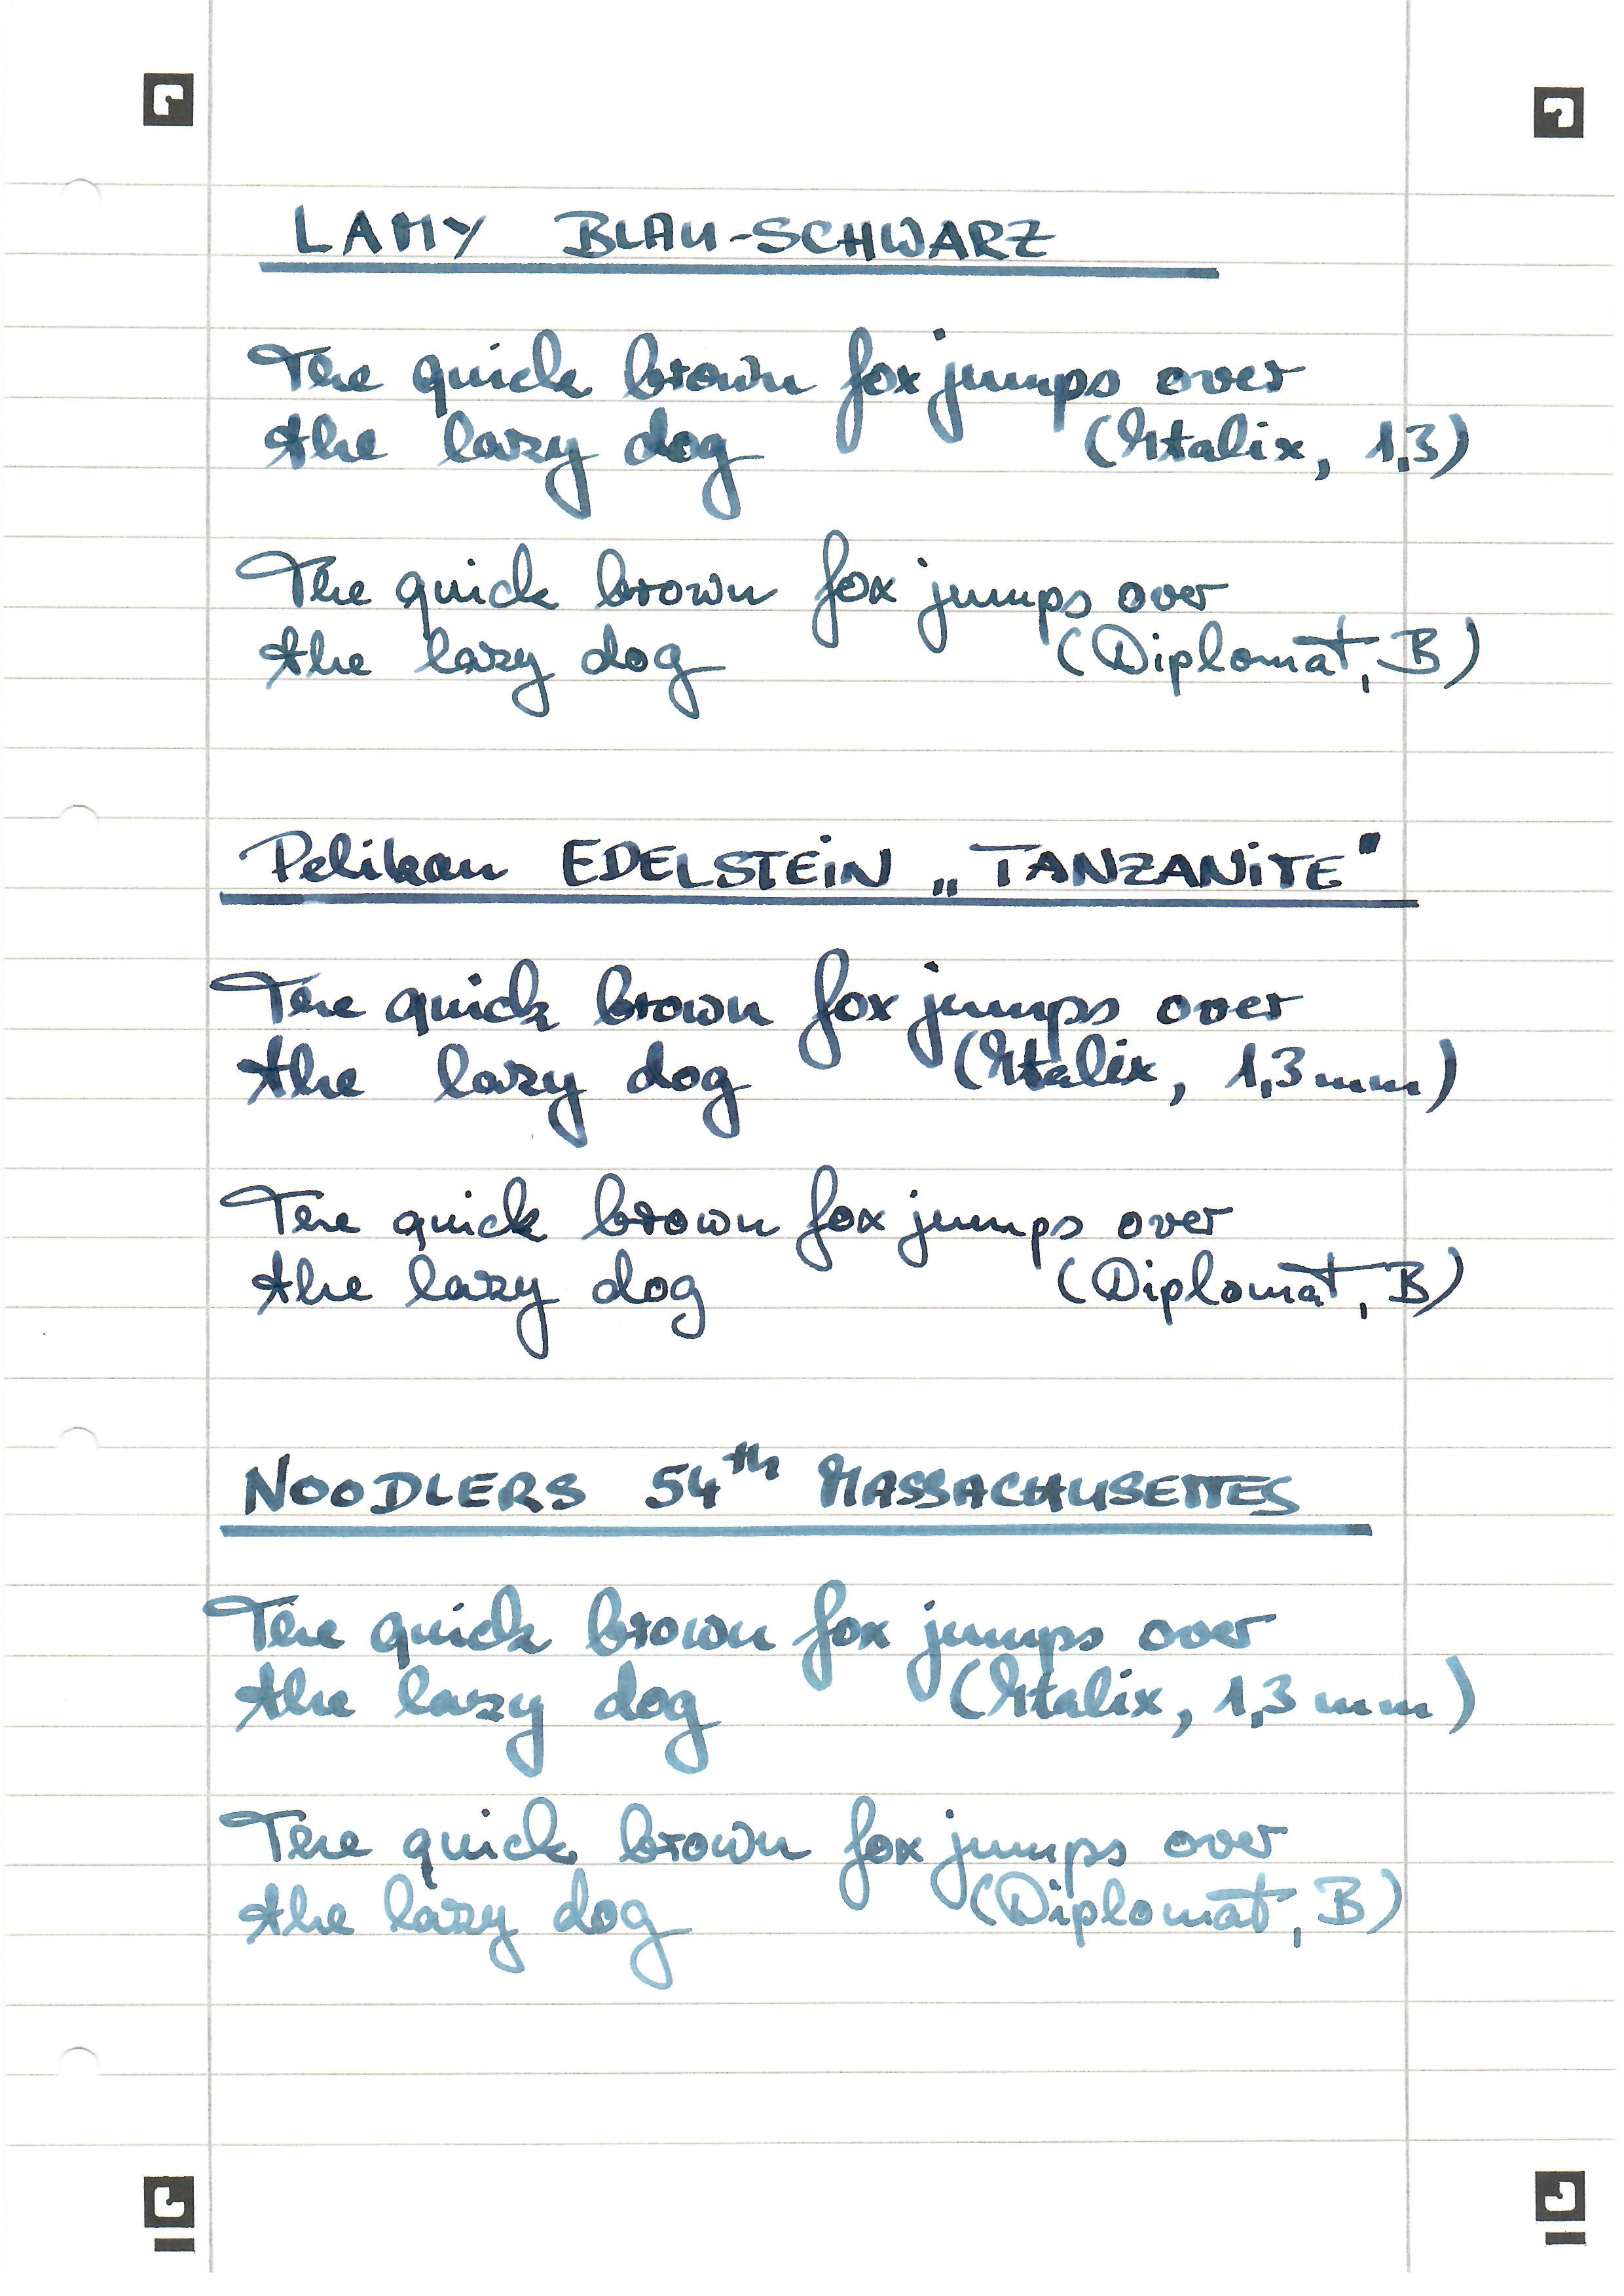 LAMY BLAU-SCHWARZ
The quick brown fox jumps over
the lazy dog (Italix, 1,3)
The quick brown fox jumps over
the lazy dog (Diplomat, B)
Pelikan EDELSTEiN „TANZANiTE"
The quick brown fox jumps over
the lazy dog (Italix, 1,3 mm)
The quick brown fox jumps over
the lazy dog (Diplomat, B)
NOODLERS 54th MASSACHUSETTES
The quick brown fox jumps over
the lazy dog (Italix, 1,3 mm)
The quick brown fox jumps over
the lazy dog (Diplomat, B)